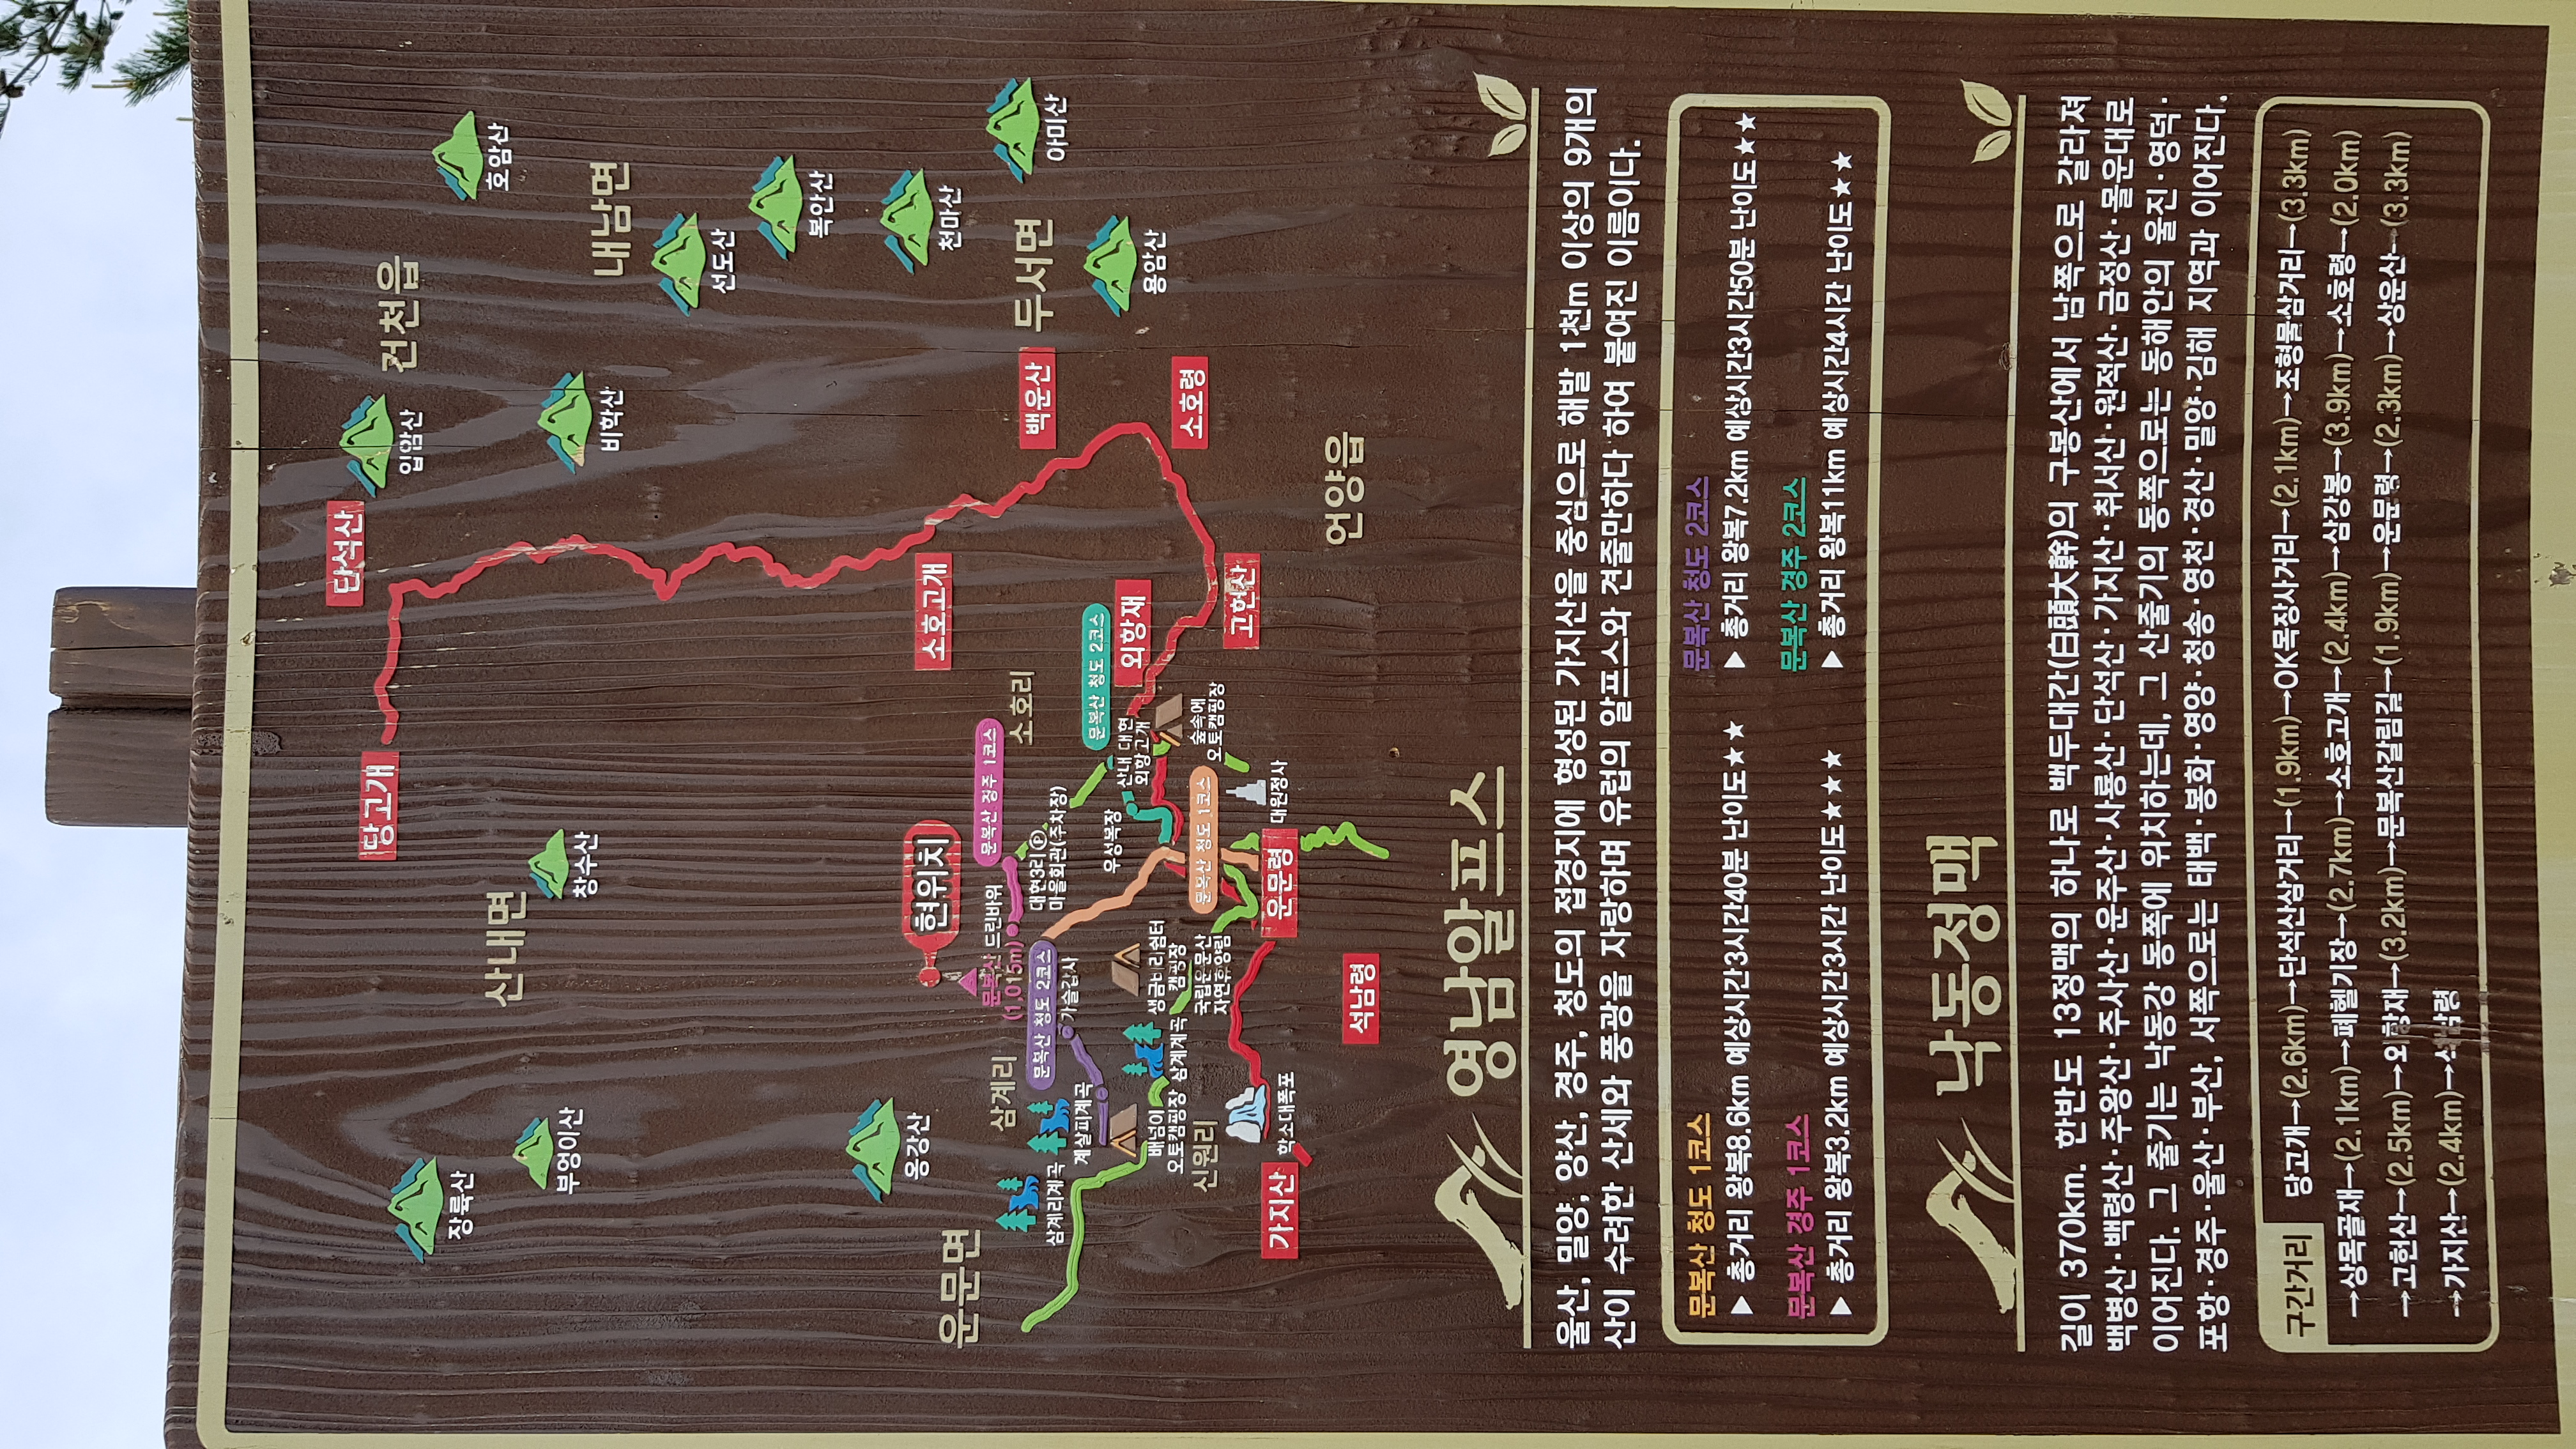 단석산
당고개
입암산
건천읍
호암산
장륙산
부엉이산
산내면
창수산
비학산
내남면
선도산
복안산
용강산
천마산
현위치
소호고개
백운산
두서면
아미산
운문면
삼계리
문복산
(1,015m)
드린바위
문복산 경주 1코스
소호리
삼계리계곡
문복산 청도 2코스
가슬갑사
대현3리 P
마을회관(주차장)
계살피계곡
문복산 청도 2코스
우성목장
산내 대현
외항고개
외항재
소호령
용암산
배넘이
오토캠핑장
삼계계곡
생금비리쉼터
캠핑장
국립운문산
자연휴양림
문복산 청도 1코스
숲속에
오토캠핑장
고헌산
신원리
학소대폭포
운문령
대원정사
가지산
석남령
언양읍
영남알프스
울산, 밀양, 양산, 경주, 청도의 접경지에 형성된 가지산을 중심으로 해발 1천m 이상의 9개의
산이 수려한 산세와 풍광을 자랑하며 유럽의 알프스와 견줄만하다 하여 붙여진 이름이다.
문복산 청도 1코스
▶ 총거리 왕복8.6km 예상시간3시간40분 난이도★★
문복산 청도 2코스
▶ 총거리 왕복7.2km 예상시간3시간50분 난이도★★
문복산 경주 1코스
▶ 총거리 왕복3.2km 예상시간3시간 난이도★★★
문복산 경주 2코스
▶ 총거리 왕복11km 예상시간4시간 난이도★★
낙동정맥
길이 370km. 한반도 13정맥의 하나로 백두대간(白頭大幹)의 구봉산에서 남쪽으로 갈라져
백병산·백령산·주왕산·주사산·운주산·사룡산·단석산·가지산·취서산·원적산·금정산·몰운대로
이어진다. 그 줄기는 낙동강 동쪽에 위치하는데, 그 산줄기의 동쪽으로는 동해안의 울진·영덕·
포항·경주·울산·부산, 서쪽으로는 태백·봉화·영양·청송·영천·경산·밀양·김해 지역과 이어진다.
구간거리
당고개→(2.6km)→단석산삼거리→(1.9km)→OK목장사거리→(2.1km)→조형물삼거리→(3.3km)
→상목골재→(2.1km)→폐헬기장→(2.7km)→소호고개→(2.4km)→삼강봉→(3.9km)→소호령→(2.0km)
→고헌산→(2.5km)→외항재→(3.2km)→문복산갈림길→(1.9km)→운문령→(2.3km)→상운산→(3.3km)
→가지산→(2.4km)→석남령